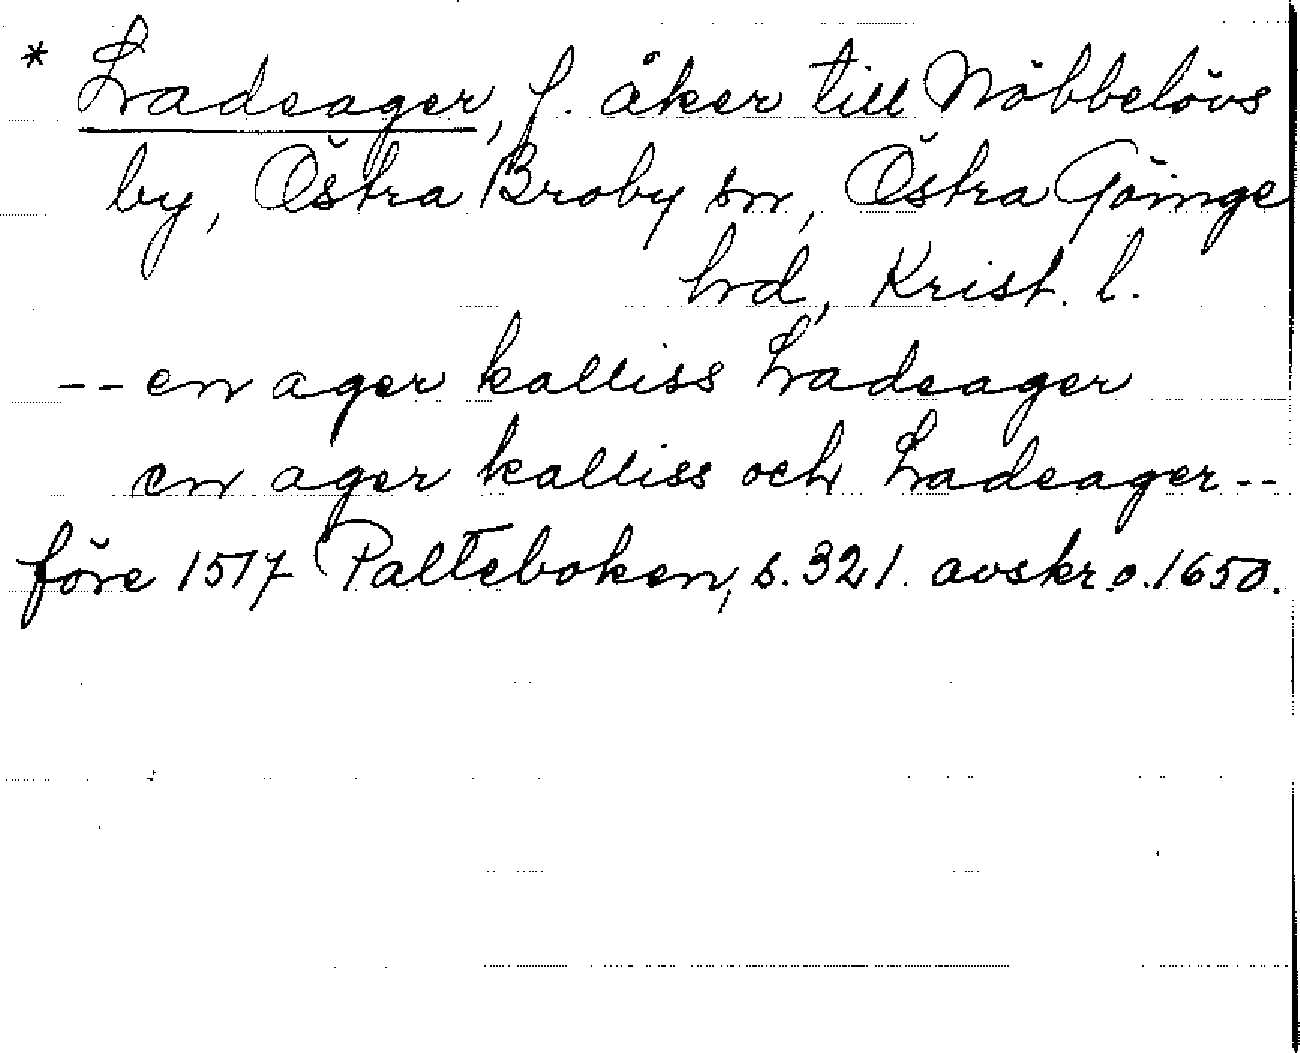 * Ladeager, f. åker till Nöbbelövs
by, Östra Broby sn, Östra Göinge
hd, Krist. l.
-- en ager kalliss Ladeager
en ager kalliss och Ladeager --
före 1517 Palteboken, s. 321. avskr. o. 1650.